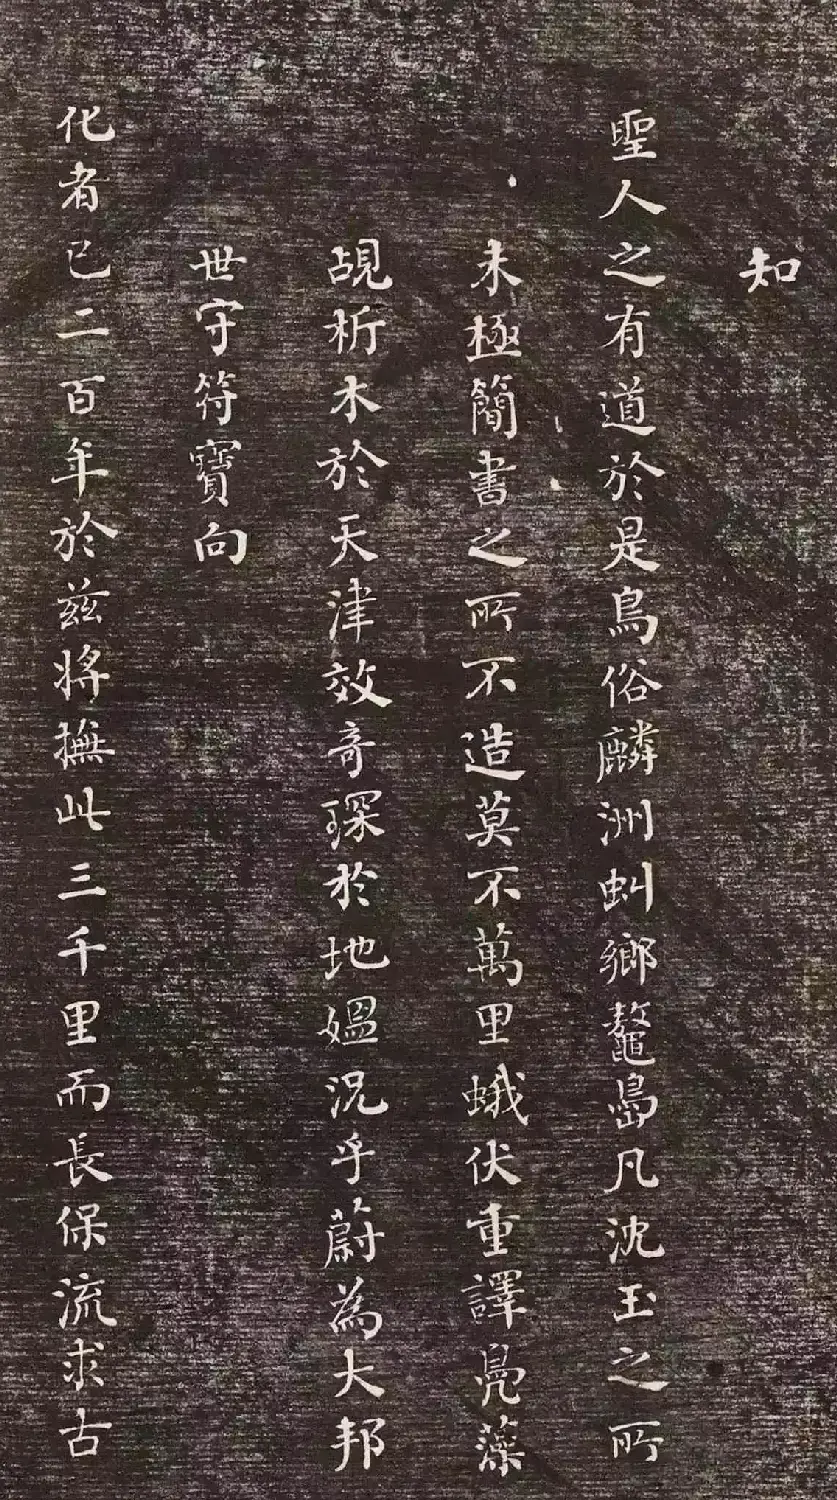 知
聖人之有道於是鳥俗麟洲虯鄉鼇島凡沈玉之所
未極簡書之所不造莫不萬里蛾伏重譯鳧藻
覘析木於天津效奇琛於地媼況乎蔚為大邦
世守符寶向
化者已二百年於兹將撫此三千里而長保流求古